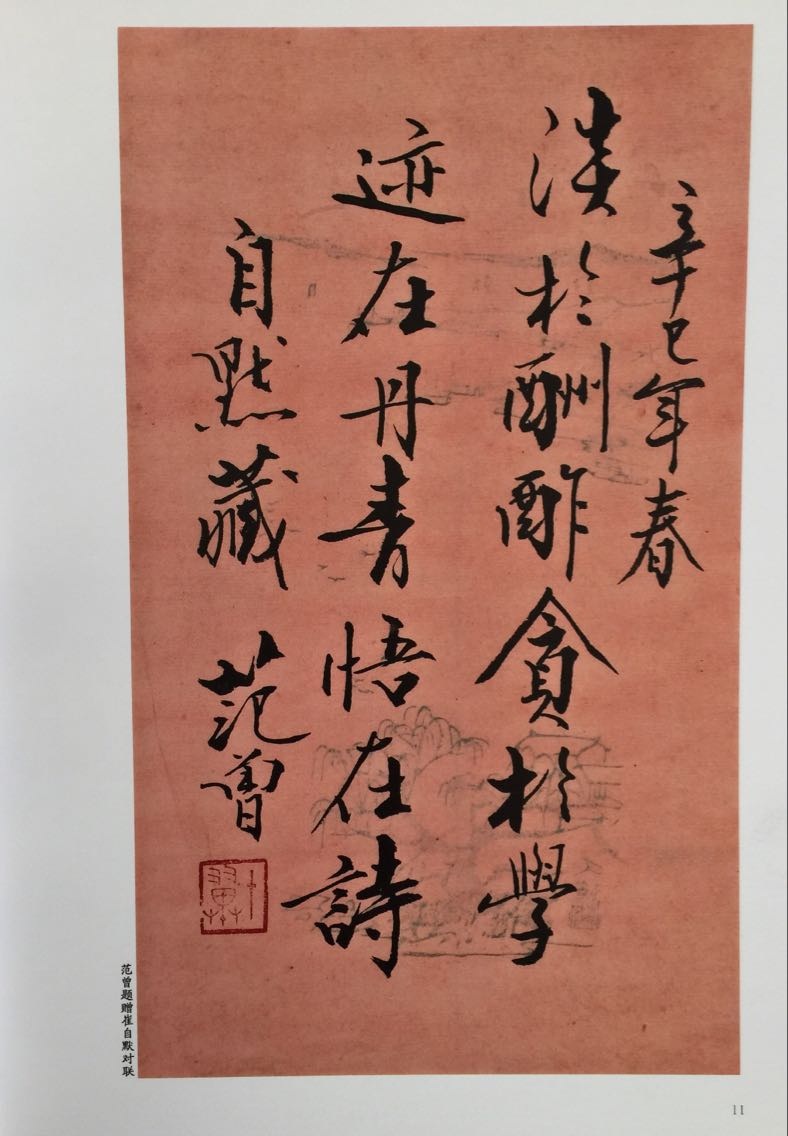 辛巳年春
淡於酬酢貪於學
迹在丹青悟在詩
自默藏 范曾
范曾题赠崔自默对联
11